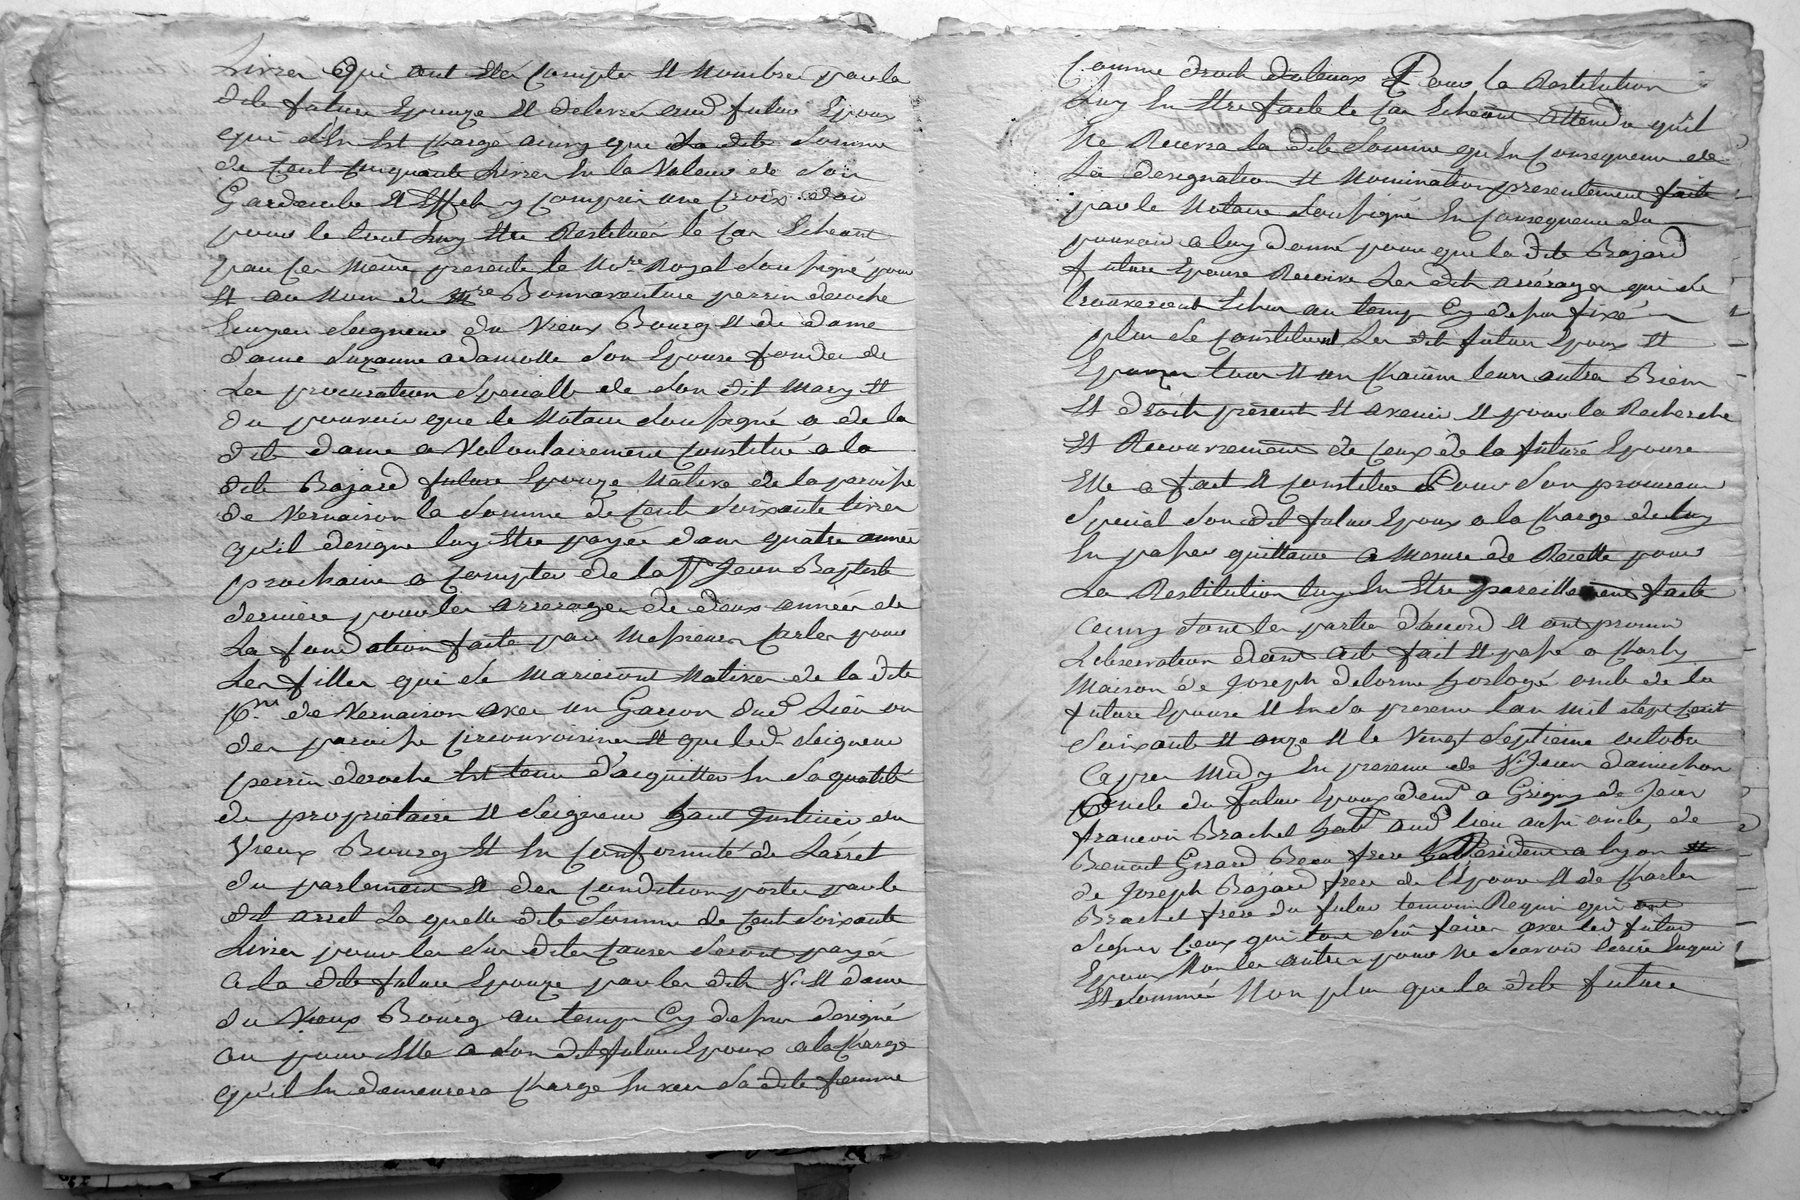 Livres qui ont étés comptés et nombrés par la
dite future Epouze et delivrés aud futur Epoux
qui s'En Est chargé ainsy que La dite somme
de cent cinquante Livres En la Valeur de son
Garderobe et Effets y compris une croix d'or
pour le tout Luy Etre Restitués le Cas Echeant
par ces même presente le No.re Royal soussigné pour
Et au Nom de M.re Bonnaventure perrin deroche
Ecuyer seigneur du Vieux Bourg et de dame
dame suzanne adamolle son Epouse fondée de
La procuration specialle de son dit mary Et
du pouvoir que le Notaire soussigné a de la
dite dame a Volontairement constitué a la
dite Bajard future Epouze Native de la paroisse
de Vernaison la somme de cent soixante livres
qu'il designe luy Etre payée dans quatre année
prochaine a compter de la St Jean Baptiste
derniere pour les arrerages de deux années de
La fondation faite par Messieurs Carles pour
Les filles qui se marieront Natives de la dite
p.sse de Vernaison avec un Garcon dud Lieu ou
des paroisse circonvoisines et que led. seigneur
perrin deroche Est tenu d'acquitter En sa qualité
de propriétaire et seigneur haut justicier du
Vieux Bourg Et En conformité de Larret
du parlement et des condition portés par le
dit arret La quelle dite somme de cent soixante
Livres pour les sus dites causes seront payés
a la dite future Epouze par les dits S.r et dame
du Vieux Bourg au temps Cy dessus designé
ou pour Elle a son dit futur Epoux a la charge
qu'il En demeurera chargé Envers sa dite femme
Comme droits dotaux Pour la Restitution
Luy En Etre faite le Cas Echeant attendu qu'il
Ne Recevra la dite somme qu'En Consequence de
La designation et Nomination presentement faite
par le Notaire soussigné En Consequence du
pouvoir a luy donné pour que la dite Bajard
future Epouse Recoive Les dits arrérages qui se
trouveront Echus au temps Cy dessus fixé
plus se constituent Les dits futurs Epoux et
Epouze tous et un chacuns leurs autres Biens
et droits présent et avenir et pour la Recherche
et Recouvrement de ceux de la future Epouse
Elle a fait et constitué Pour son procureur
special son dit futur Epoux a la charge de luy
En passer quittance a Mesure de Recette pour
La Restitution luy En Etre pareillement faite
ainsy sont les parties d'acord et ont promis
Lobservation dont acte fait et passé a Charly
Maison de Joseph delorme horlogé oncle de la
future Epouse Et En sa presence Lan mil sept cent
soixante et onze et le Vingt septieme octobre
apres midy En presence de S.r Jean damichon
oncle du futur Epoux dem.t a Grigny de Jean
francois Brachet hab.t aud lieu aussi oncle, de
Benoit Girard Beau frere Resident a lyon
de Joseph Bajard frere de l'Epouse Et de Charles
Brachet frere du futur temoins Requis qui ont
signés Ceux qui lont seu faire avec led futur
Epoux Non les autres pour Ne scavoir Ecrire Enquis
et sommés Non plus que la dite future